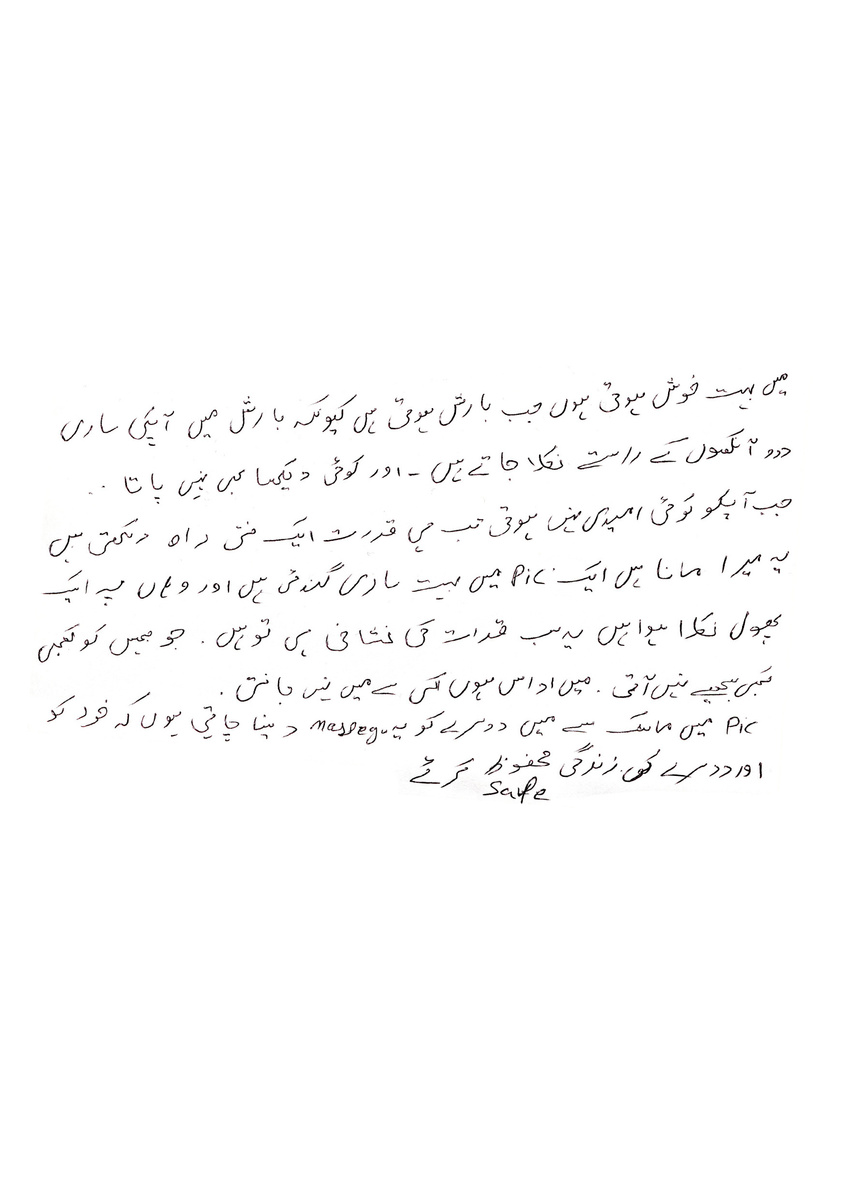 میں بہت خوش ہوتی ہوں جب بارش ہوتی ہں کیونکہ بارش میں آپکی ساری
درد آنکھوں کے راستے نکلا جاتے ہیں - اور کوئی دیکھا بھی نہیں پاتا ..
جب آپکو کوئی امیدی نہیں ہوتی تب ہی قدرت ایک نئی راہ دیکھتی ہیں
یہ میرا مانا ہں ایک Pic میں بہت ساری گندگی ہں اور وہاں پہ ایک
پھول نکلا ہوا ہں یہ سب قدرات کی نشانی ہی تو ہں . جو ہمیں کو کبھی
کبھی سمجھے نہیں آتی . میں اداس ہوں کسی سے میں نہیں جانتی .
Pic میں ماسک سے میں دوسرے کو یہ دینا چاہتی ہوں کہ خود کو
اور دوسرے کی زندگی محفوظ کرئے
Safe